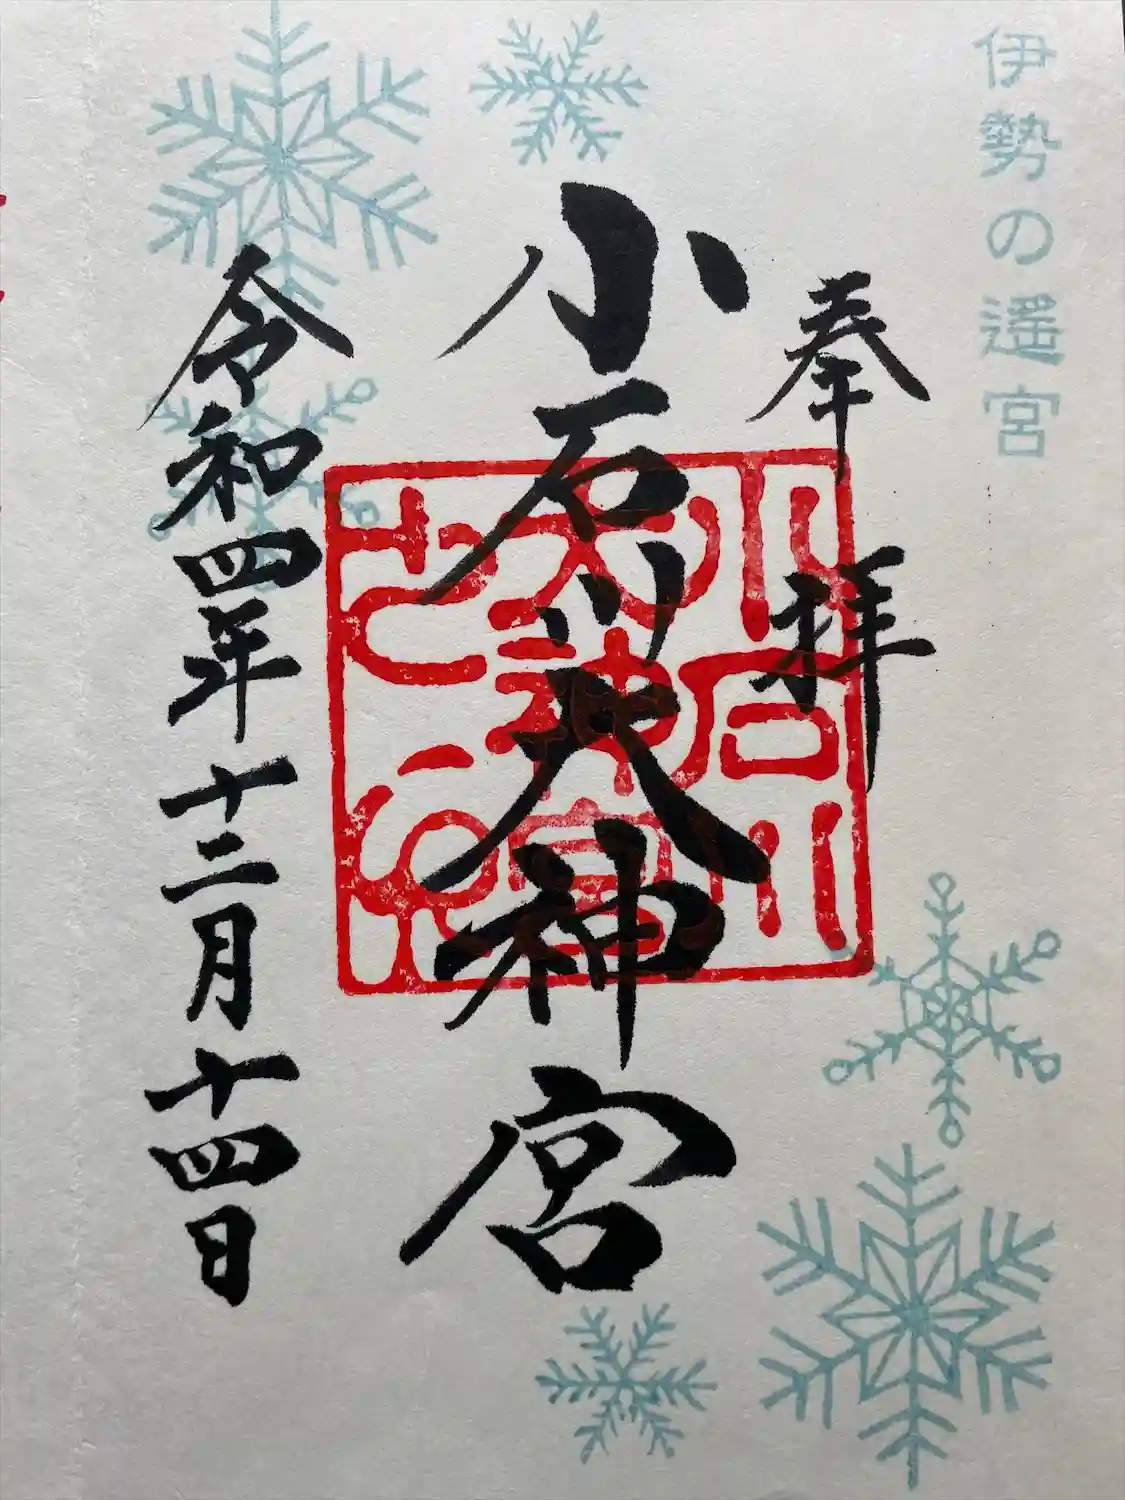 伊勢の遥宮
奉拝
小石川大神宮
令和四年十二月十四日
小石川大神宮之印